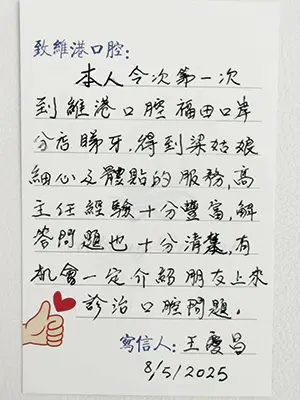 致維港口腔：
本人今次第一次
到維港口腔福田口岸
分店睇牙，得到梁姑娘
細心及體貼的服務，高
主任經驗十分豐富，解
答問題也十分清楚，有
机會一定介紹朋友上來
診治口腔問題。
寫信人：王慶昌
8/5/2025